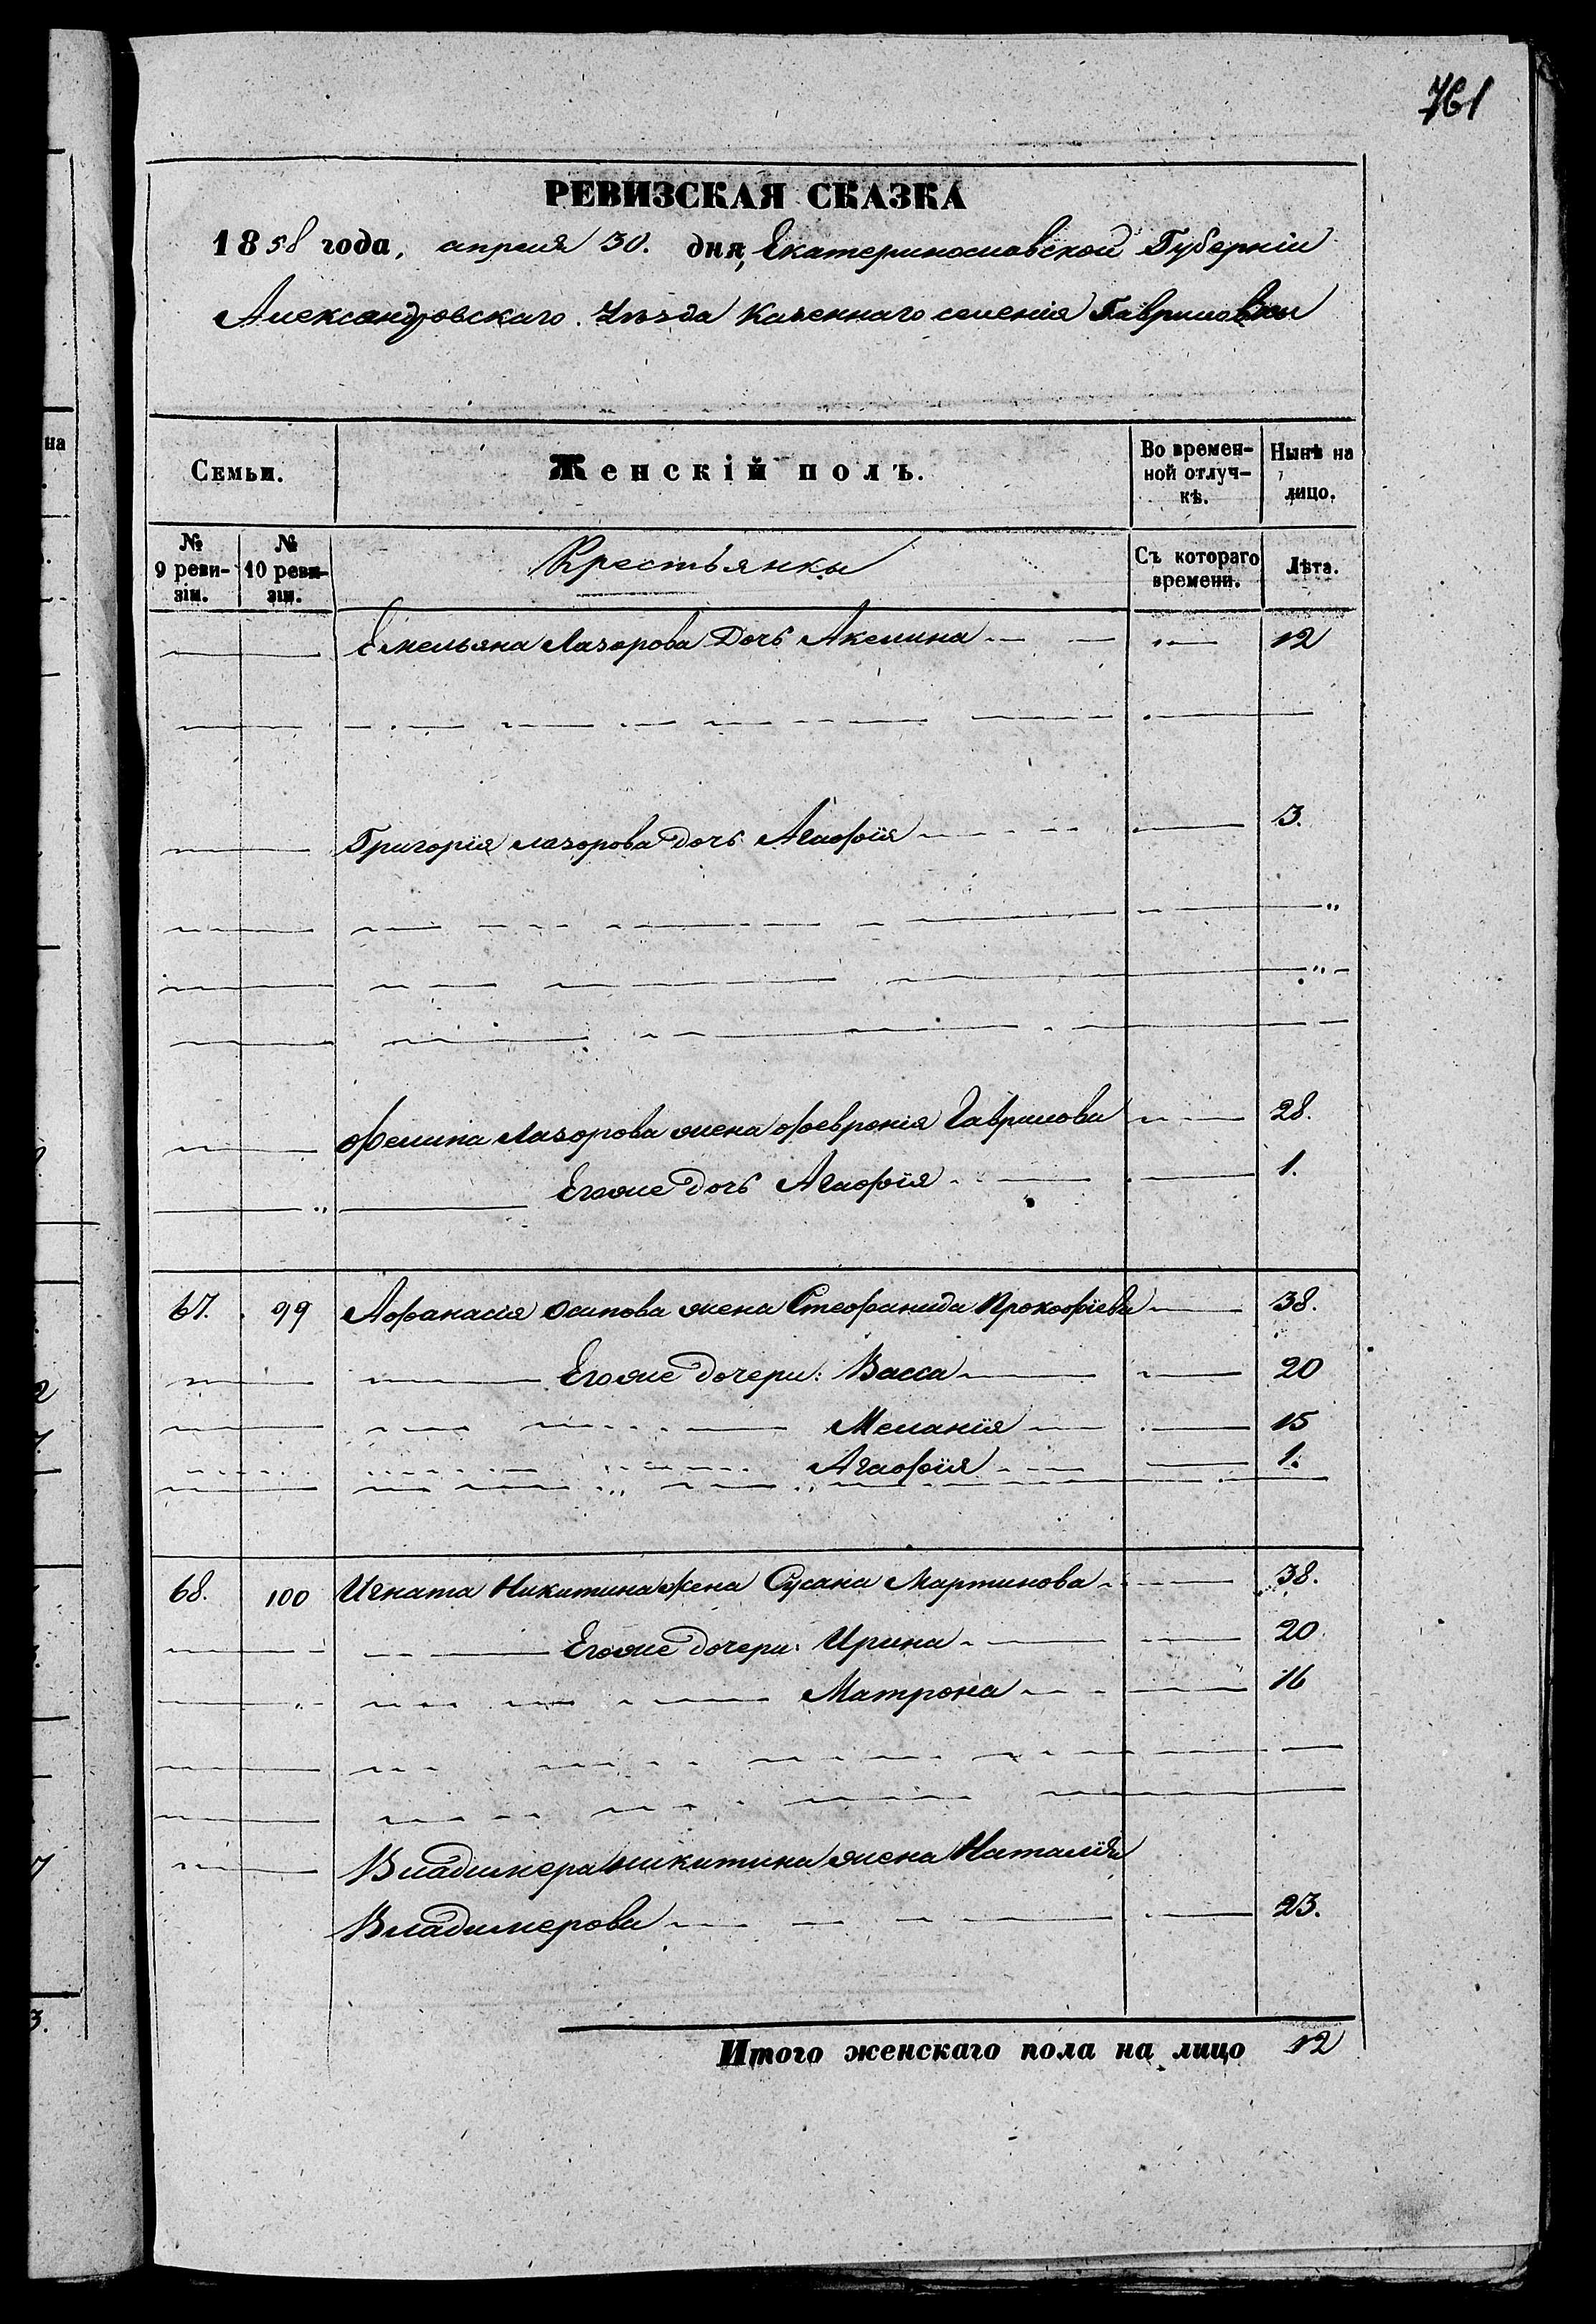 761
РЕВИЗСКАЯ СКАЗКА
1858 года, апреля 30. дня, Екатеринославской Губерніи
Александровскаго Уѣзда Казеннаго селенія Гавриловки
Семьи. Женскій полъ. Во времен-ной отлуч-кѣ. Нынѣ на лицо.
№ 9 реви-зіи. № 10 реви-зіи. Крестьянки Съ котораго времени. Лѣта.
Емельяна Лазорова Дочь Акелина 12
Григорія лазорова дочь Агафія 3.
Фелипа Лазорова жена Февронія Гаврилова 28.
Егоже дочь Агафія 1.
67. 99 Афанасія Осипова жена Стефанида Прокофіева 38.
Егоже дочери: Васса 20
Меланія 15
Агафія 1.
68. 100 Игната Никитина жена Сусана Мартинова 38.
Егоже дочери: Ирина 20
Матрона 16
Владимера никитина жена Наталія
Владимерова 23.
Итого женскаго пола на лицо 12